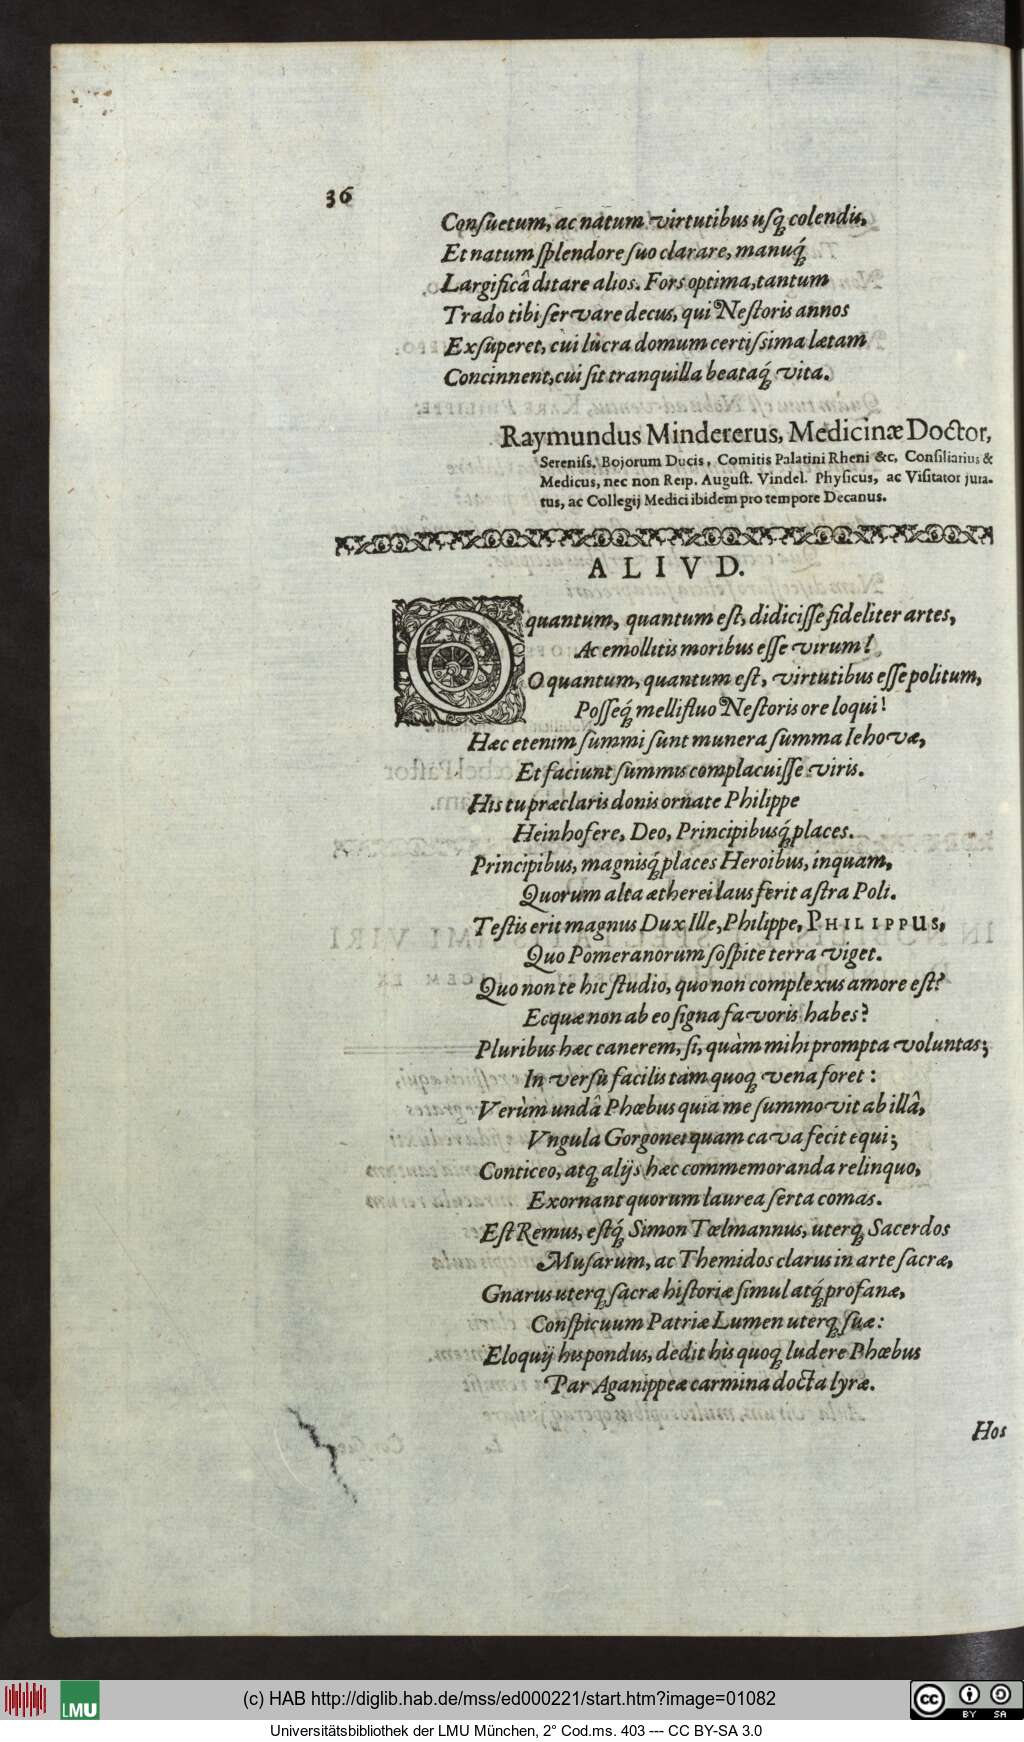 36
Conſuetum, ac natum virtutibus uſq́ colendis,
Et natum ſplendore ſuo clarare, manuq́
Largificâ ditare alios. Fors optima, tantum
Trado tibi ſervare decus, qui Neſtoris annos
Exſuperet, cui lucra domum certiſsima lætam
Concinnent, cui ſit tranquilla beataq́ vita.
Raymundus Mindererus, Medicinæ Doctor,
Sereniſs. Bojorum Ducis, Comitis Palatini Rheni &c, Conſiliarius &
Medicus, nec non Reip. Auguſt. Vindel. Phyſicus, ac Viſitator jura-
tus, ac Collegij Medici ibidem pro tempore Decanus.
ALIVD.
O quantum, quantum eſt, didiciſſe fideliter artes,
Ac emollitis moribus eſſe virum!
O quantum, quantum eſt, virtutibus eſſe politum,
Poſſeq́ mellifluo Neſtoris ore loqui!
Hæc etenim ſummi ſunt munera ſumma Iehovæ,
Et faciunt ſummis complacuiſſe viris.
His tu præclaris donis ornate Philippe
Heinhofere, Deo, Principibusq́ places.
Principibus, magnisq́ places Heroibus, inquam,
Quorum alta ætherei laus ferit aſtra Poli.
Teſtis erit magnus Dux Ille, Philippe, PHILIPPUS,
Quo Pomeranorum ſoſpite terra viget.
Quo non te hic ſtudio, quo non complexus amore eſt?
Ecquæ non ab eo ſigna favoris habes?
Pluribus hæc canerem, ſi, quàm mihi prompta voluntas;
In verſu facilis tam quoq́ vena foret:
Verùm undâ Phœbus quia me ſummovit ab illâ,
Vngula Gorgonei quam cava fecit equi;
Conticeo, atq́ alijs hæc commemoranda relinquo,
Exornant quorum laurea ſerta comas.
Eſt Remus, eſtq́ Simon Tœlmannus, uterq́ Sacerdos
Muſarum, ac Themidos clarus in arte ſacræ,
Gnarus uterq́ ſacræ hiſtoriæ ſimul atq́ profanæ,
Conſpicuum Patriæ Lumen uterq́ ſuæ:
Eloquij his pondus, dedit his quoq́ ludere Phœbus
Par Aganippeæ carmina docta lyræ.
Hos
LMU
(c) HAB http://diglib.hab.de/mss/ed000221/start.htm?image=01082
cc BY SA
Universitätsbibliothek der LMU München, 2° Cod.ms. 403 --- CC BY-SA 3.0